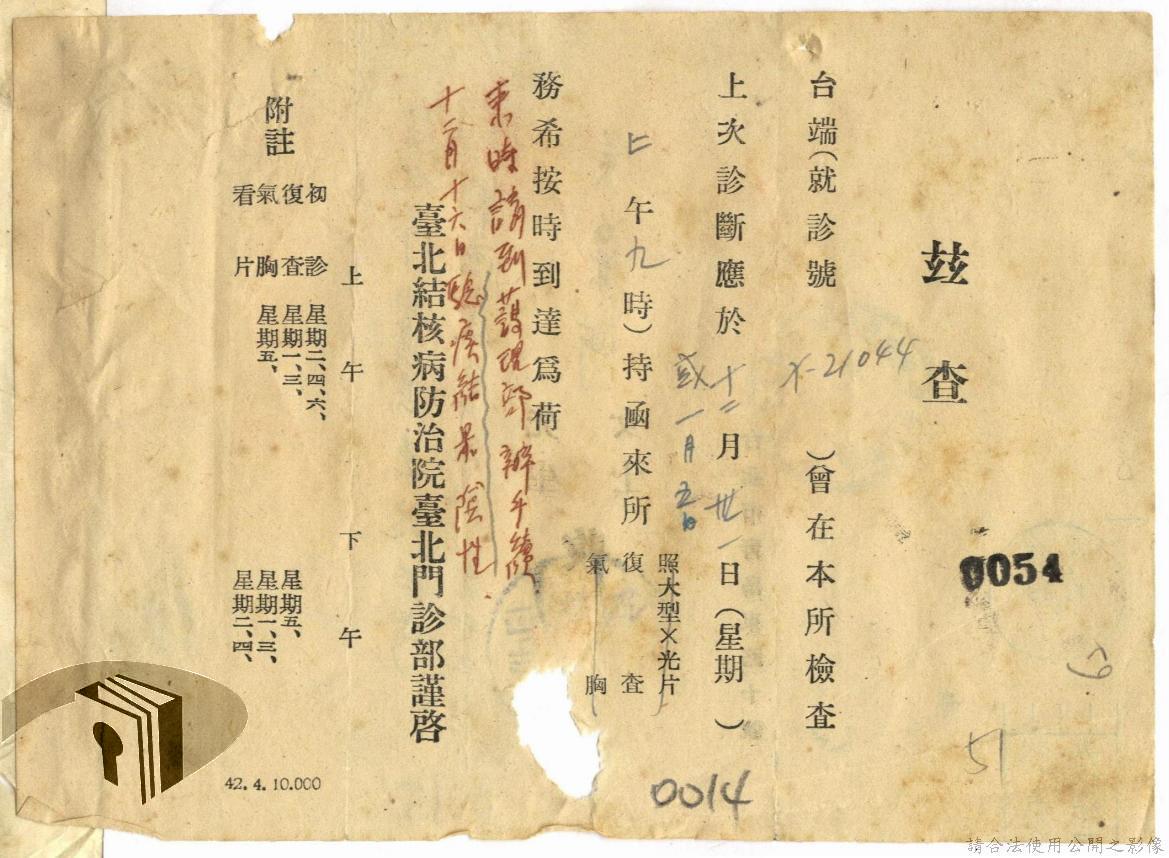 茲查
台端(就診號 X-21044 )曾在本所檢查
上次診斷應於十二月卅一日(星期 )
或一月五日
上午九時)持函來所
照大型X光片
復查
氣胸
務希按時到達為荷
來時請到護理部辦手續
十二月十六日驗痰結果陰性
臺北結核病防治院臺北門診部謹啓
附註
上午 下午
初診 星期二、四、六、
復查 星期一、三、 星期五、
氣胸 星期五、 星期一、三、
看片 星期二、四、
0054
51
0014
42.4.10.000
請合法使用公開之影像